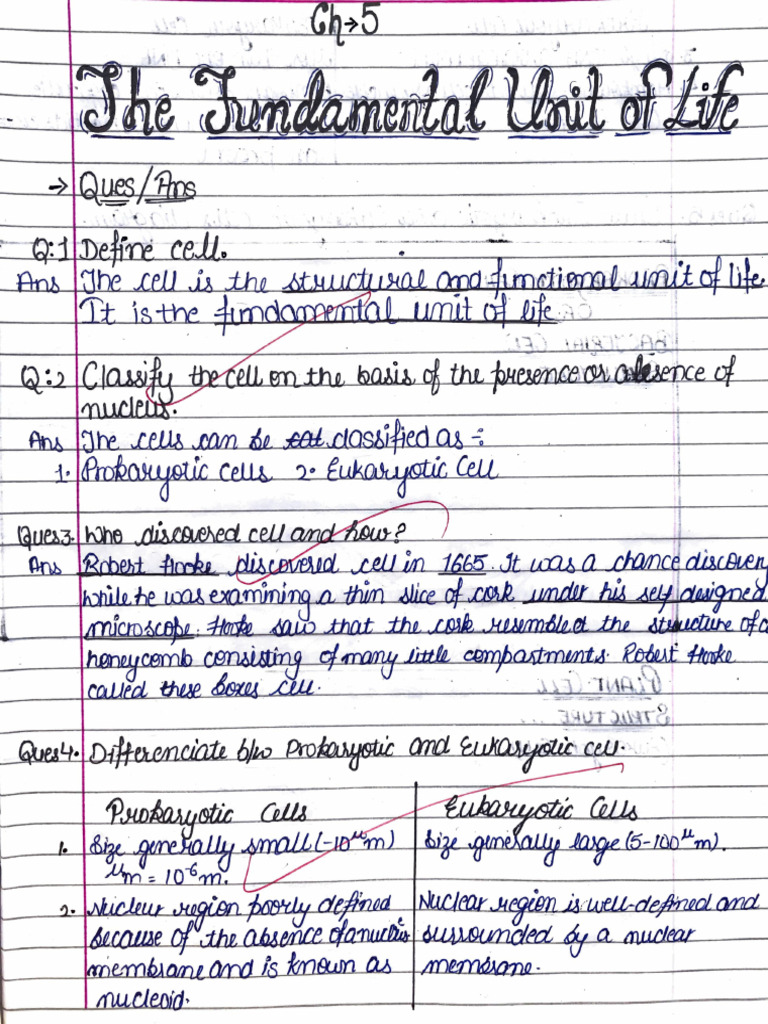 Ch→5
The Fundamental Unit of Life
→ Ques/Ans
Q:1 Define cell.
Ans The cell is the structural and functional unit of life.
It is the fundamental unit of life.
Q:2 Classify the cell on the basis of the presence or absence of
nucleus.
Ans The cells can be classified as :-
1. Prokaryotic cells 2. Eukaryotic Cell
Ques3. Who discovered cell and how?
Ans Robert Hooke discovered cell in 1665. It was a chance discovery
while he was examining a thin slice of cork under his self designed
microscope. Hooke saw that the cork resembled the structure of a
honeycomb consisting of many little compartments. Robert Hooke
called these boxes cell.
Ques4. Differenciate b/w Prokaryotic and Eukaryotic cell.
Prokaryotic Cells
1. Size generally small (-10µm)
µm = 10⁻⁶m.
2. Nucleur region poorly defined
because of the absence of a nuclear
membrane and is known as
nucleoid.
Eukaryotic Cells
Size generally large (5-100µm).
Nuclear region is well-defined and
surrounded by a nuclear
membrane.